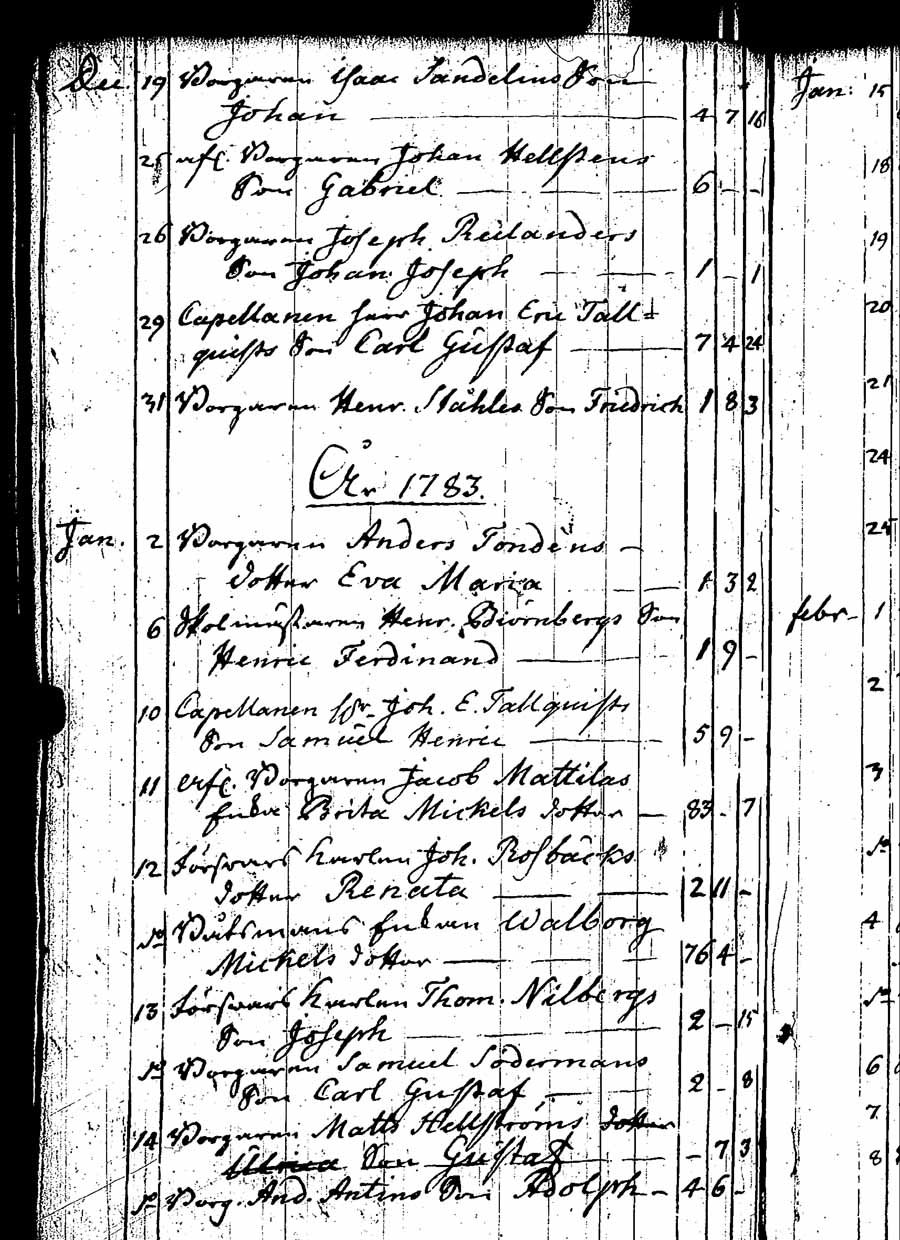 Dec. 19 Borgaren Isaac Sandelins Son
Johan — 4 7 16
25 afl. Borgaren Johan Hellstens
Son Gabriel — 6 - -
26 Borgaren Joseph Reilanders
Son Johan Joseph — 1 - 1
29 Capellanen Herr Johan Eric Täll=
quists Son Carl Gustaf — 7 4 24
31 Borgaren Henr. Ståhles Son Friedrich 1 8 3
År 1783.
Jan. 2 Borgaren Anders Tondens -
dotter Eva Maria — 1 3 2
6 Skolmästaren Henr. Biörnbergs Son
Henric Ferdinand — 1 9 -
10 Capellanen Hr. Joh. E. Tallquists
Son Samuel Henric — 5 9 -
11 Borgaren Jacob Mattilas
Enka Brita Mickels dotter — 83 - 7
12 Försvars karlen Joh. Rosbäcks
dotter Renata — 2 11 -
do Båtsmans Enkan Walborg
Mickels dotter — 76 4 -
13 Försvars karlen Thom. Nilbergs
Son Joseph — 2 - 15
do Borgaren Samuel Södermans
Son Carl Gustaf — 2 - 8
14 Borgaren Matts Hellströms dotter
Ulrica Son Gustaf — - 7 3
do Borg. And. Antins Son Adolph - 4 6 -
Jan: 15
18
19
20
21
24
25
febr. 1
2
3
do
4
do
6
7
8